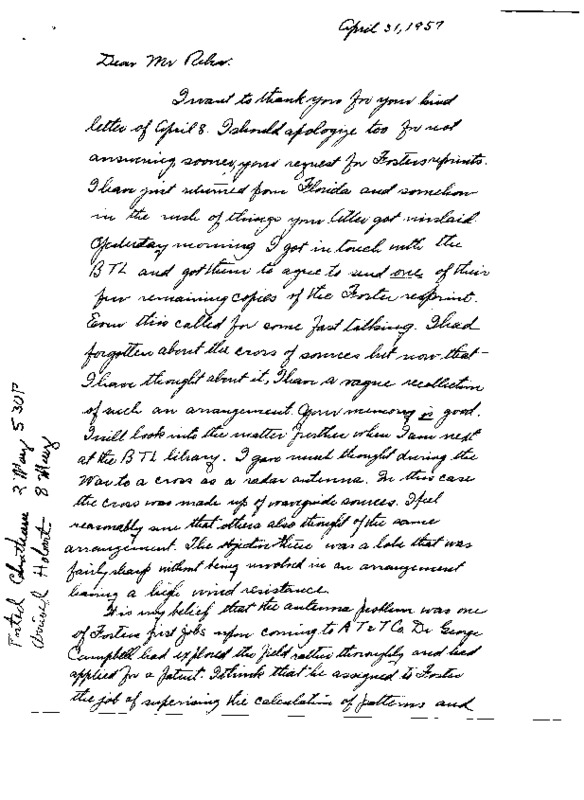 April 31, 1957
Dear Mr Reber:
I want to thank you for your kind
letter of April 8. I should apologize too for not
answering sooner, your request for Fosters reprints.
I have just returned from Florida and somehow
in the rush of things your letter got mislaid
Yesterday morning I got in touch with the
BTL and got them to agree to send one of their
few remaining copies of the Foster reprint.
Even this called for some fast talking. I had
forgotten about the cross of sources but now that
I have thought about it, I have a vague recollection
of such an arrangement. Your memory is good.
I will look into the matter further when I am next
at the BTL library. I gave much thought during the
War to a cross as a radar antenna. In this case
the cross was made up of waveguide sources. I feel
reasonably sure that others also thought of the same
arrangement. The objective there was a lobe that was
fairly sharp without being involved in an arrangement
having a high wind resistance.
It is my belief that the antenna problem was one
of Fosters first jobs upon coming to AT&T Co. Dr George
Campbell had explored the field rather thoroughly and had
applied for a patent. I think that he assigned to Foster
the job of supervising the calculation of patterns and
Posted 2 May 530P
Arrived Hobart 8 May